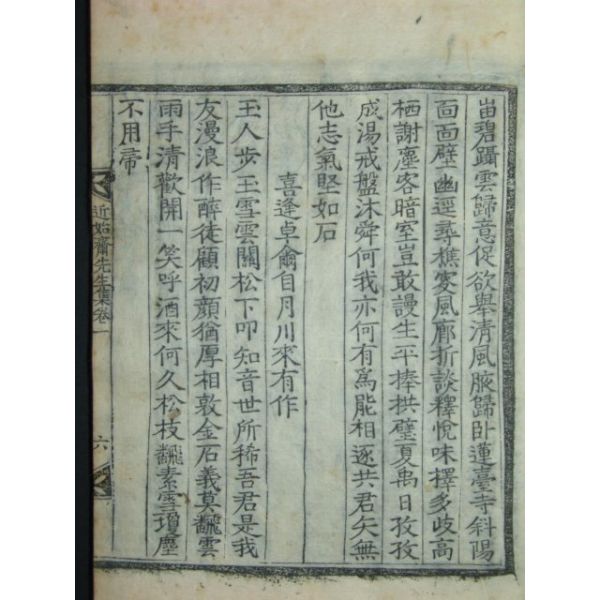 畄碧躡雲歸意促欲舉清風腋歸卧蓮臺寺斜陽
面面壁幽逕尋樵客風廊折談釋悅味擇多歧高
栖謝塵客暗室豈敢謾生平捧拱璧夏禹日孜孜
成湯戒盤沐舜何我亦何有爲能相逐共君矢無
他志氣堅如石
喜逢卓侖自月川來有作
玉人步玉雪雲關松下叩知音世所稀吾君是我
友漫浪作醉徒顧初顔猶厚相敦金石義莫飜雲
雨手清歡開一笑呼酒來何久松枝飜素雪瓊塵
不用帚
近始齋先生集卷一
六